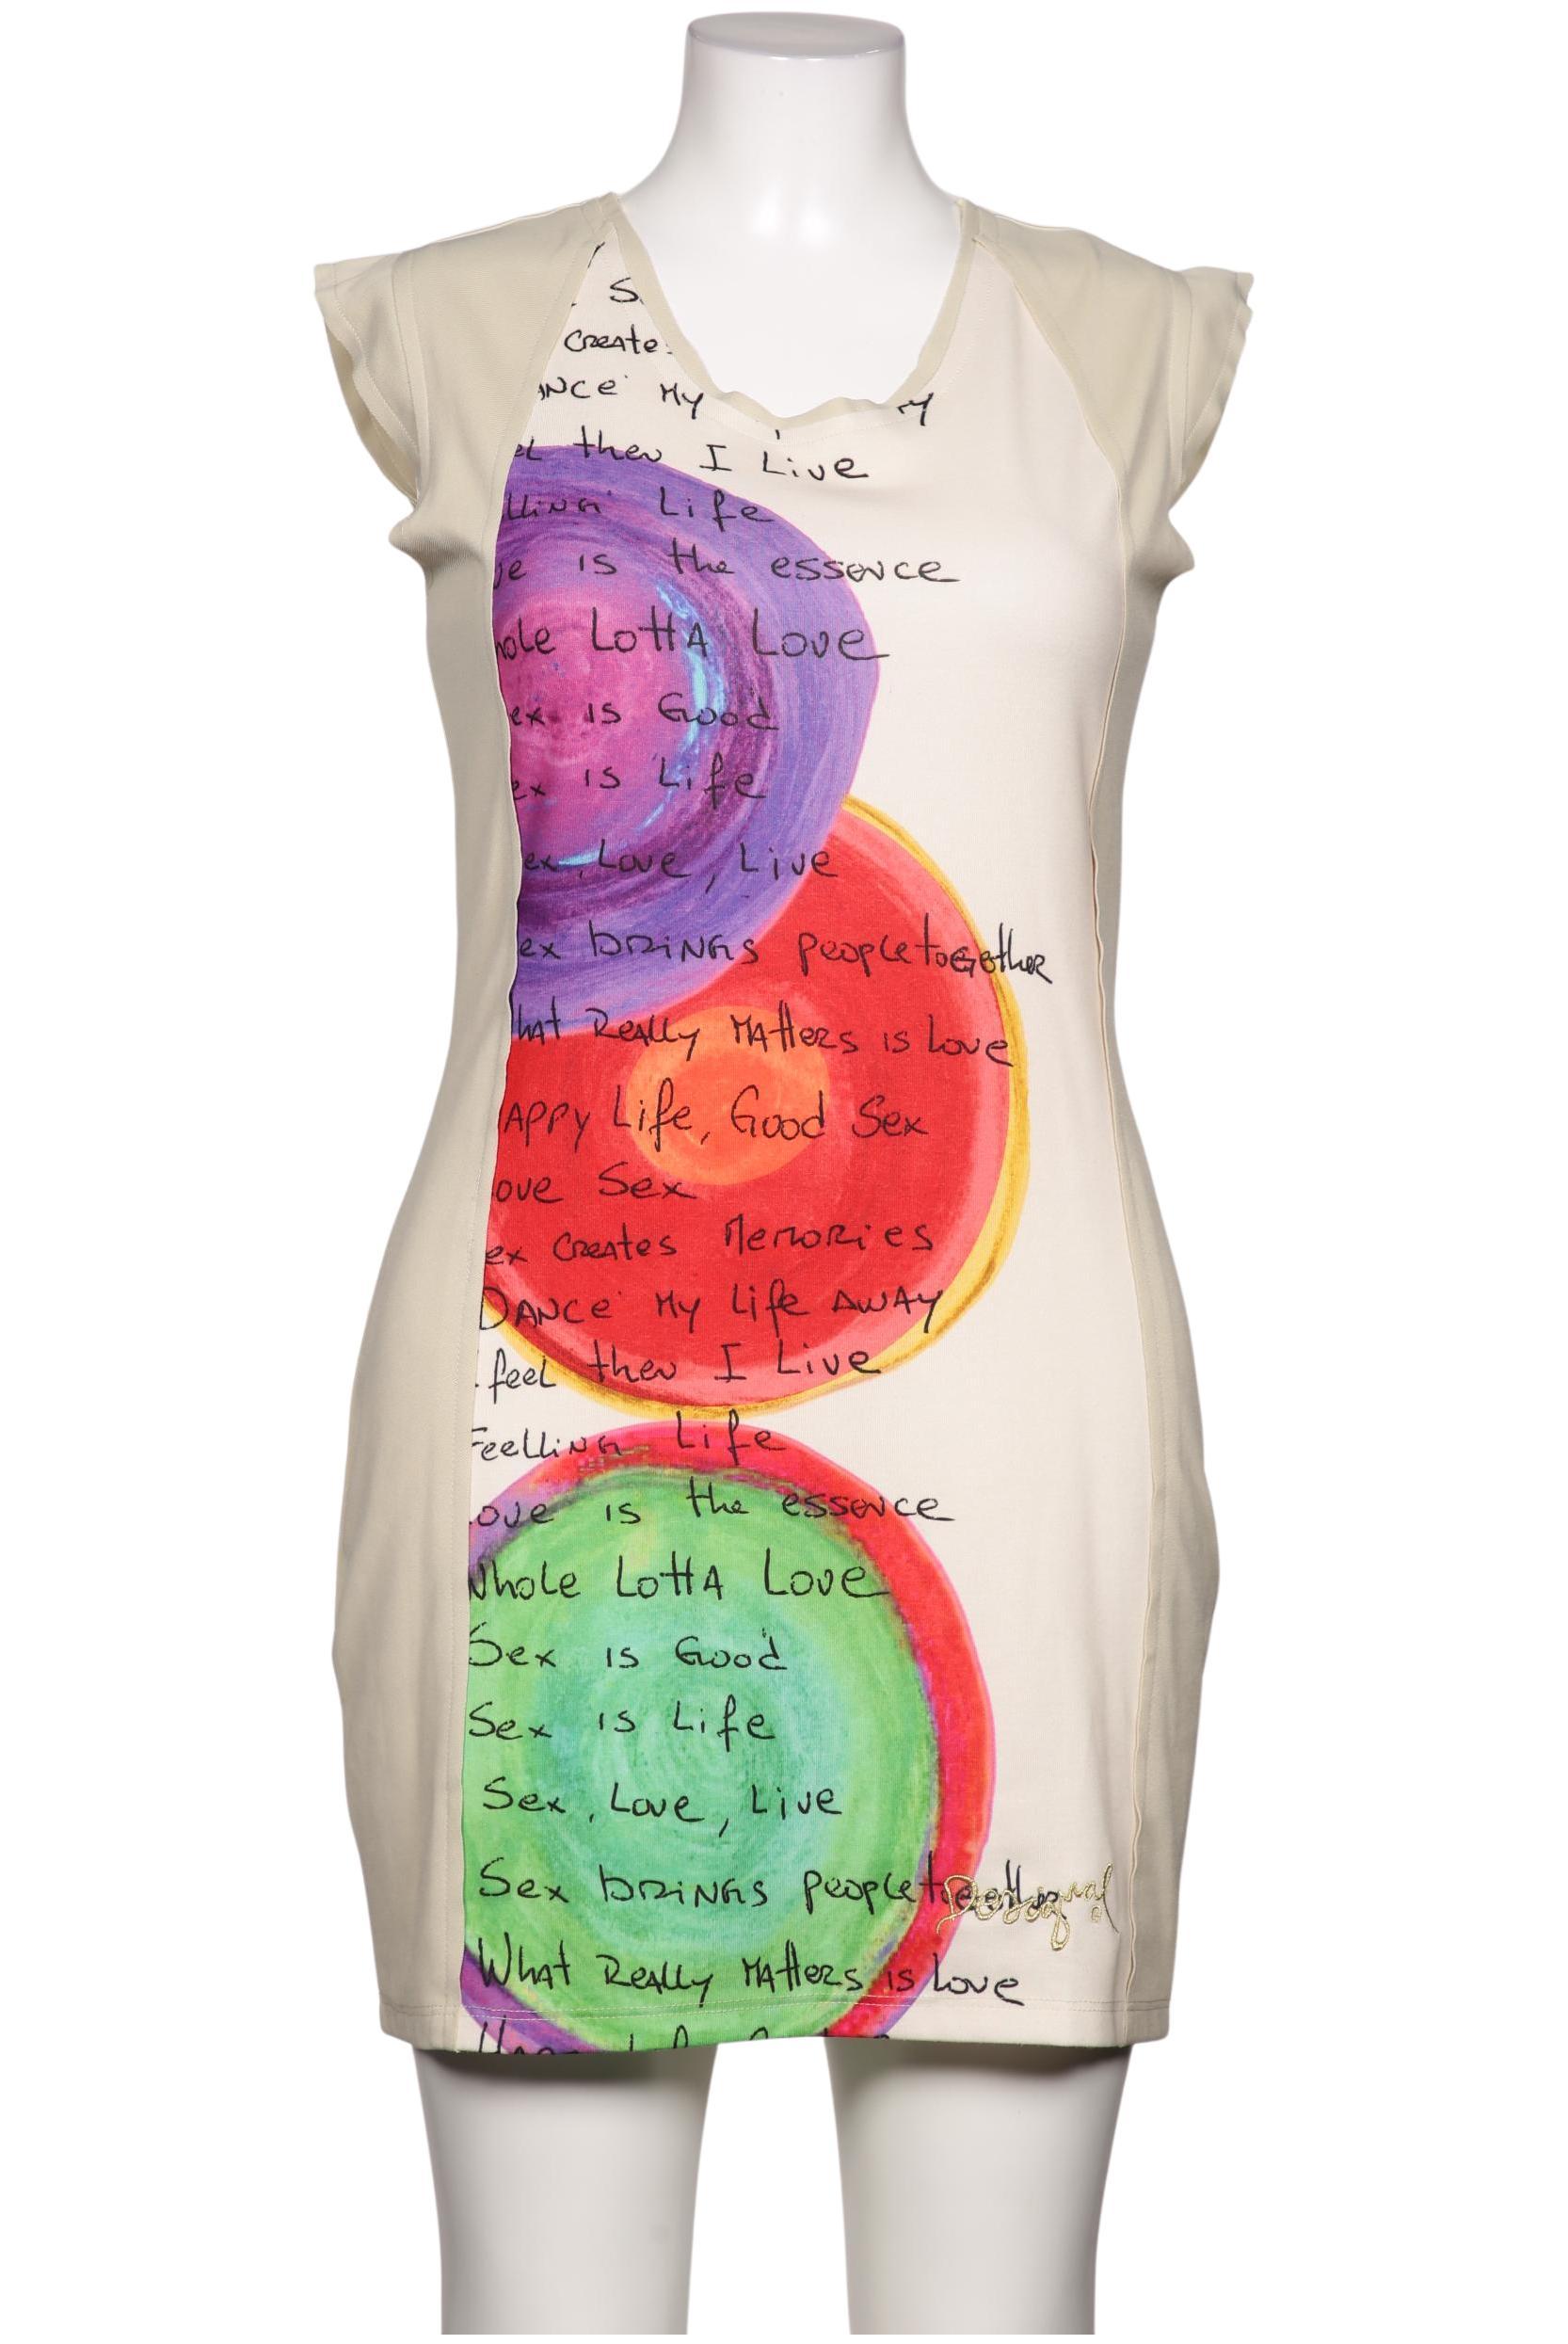 S
Create
ANCE My
el then I Live
lling Life
ve is the essence
hole Lotta Love
ex is Good
ex is Life
ex, Love, Live
ex brings people together
hat Really Matters is Love
appy Life, Good Sex
ove Sex
ex Creates Memories
Dance My Life Away
feel then I Live
Feelling Life
ove is the essence
Whole Lotta Love
Sex is Good
Sex is Life
Sex, Love, Live
Sex brings people together
Desigual
What Really Matters is Love